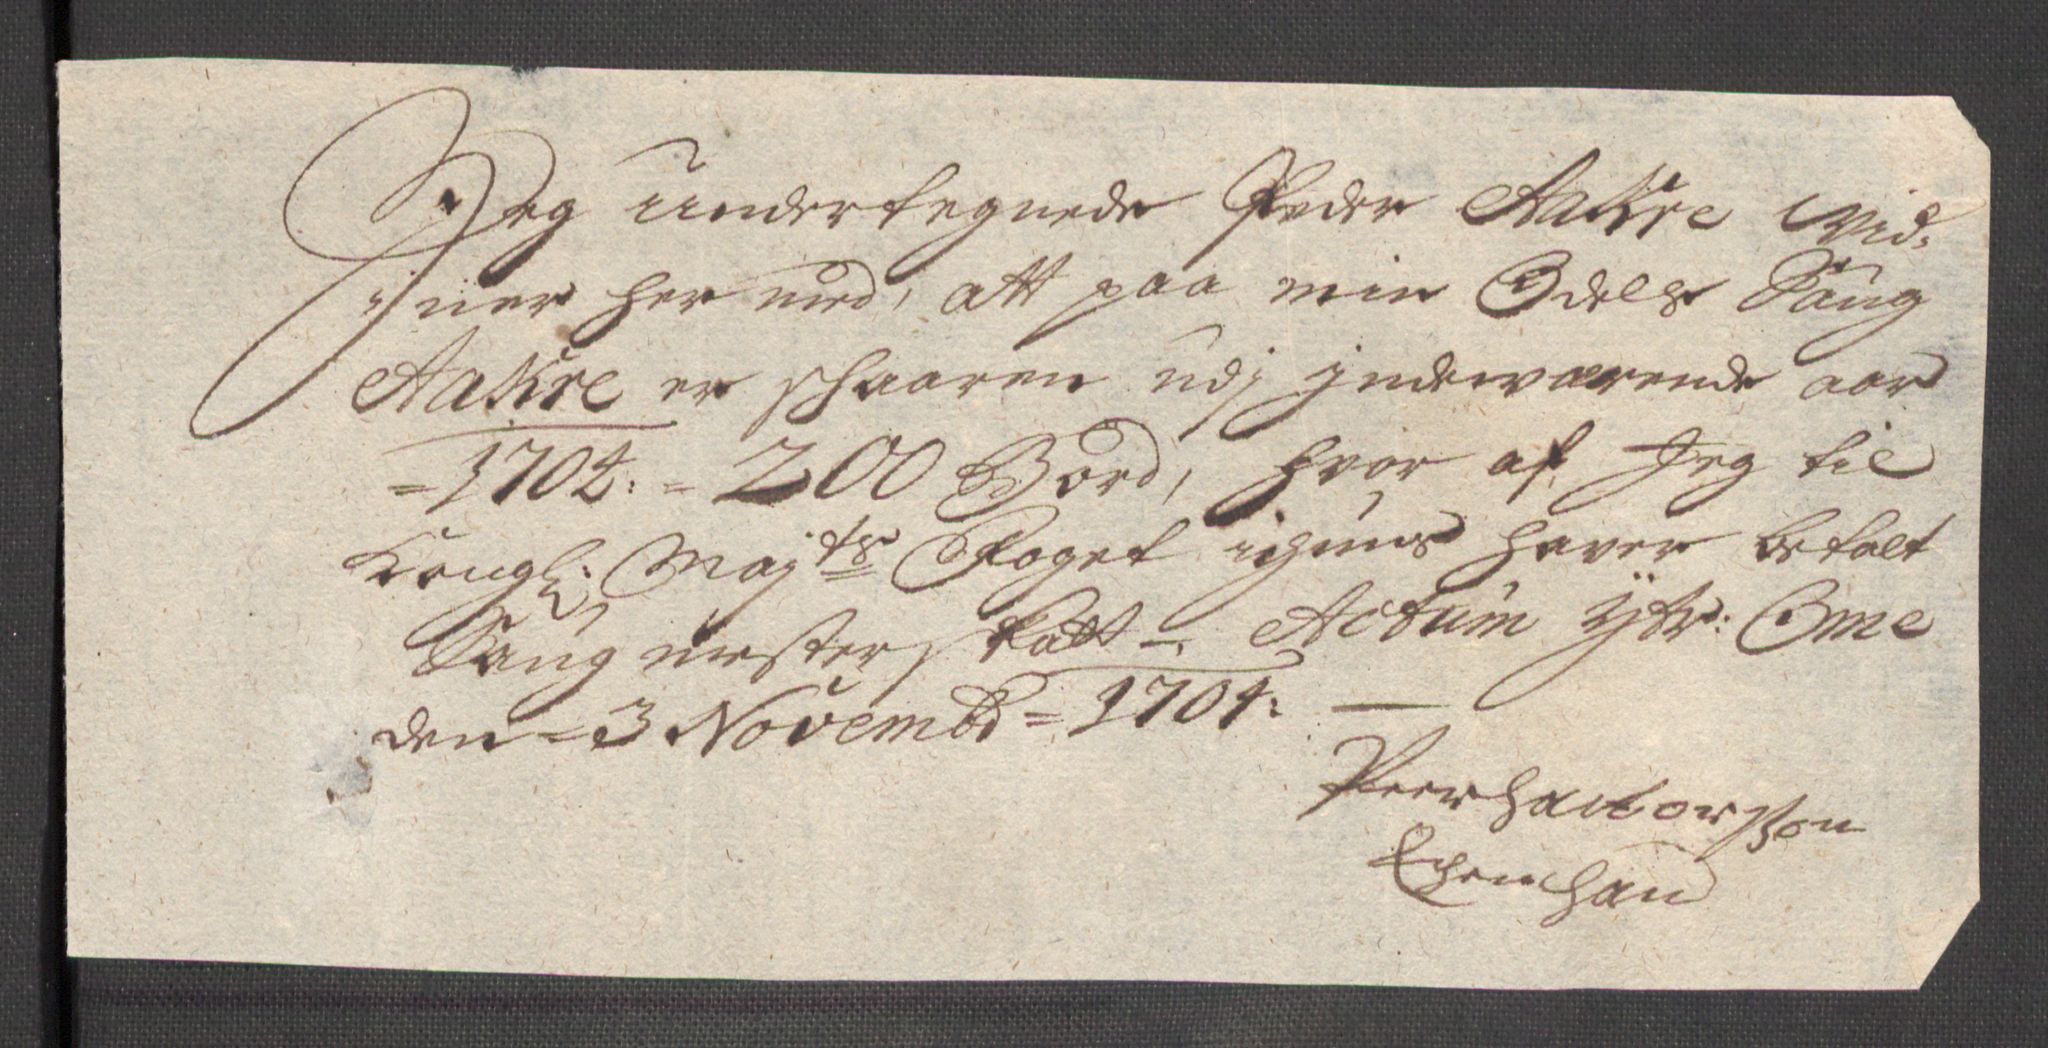 Jeg undertegnede Peder Aakre vid-
ner her med, att paa min Odels Saug
Aakre er schaaren udj jndeværende aar
=1704:= 200 Bord, hvor af Jeg til
Kongl: Mayts Foget haver betalt
Saug mester skatt -. Actum Ytr: Ome
den = 3 Novemb = 1704:
Peer Haltorsson
Egen Hand